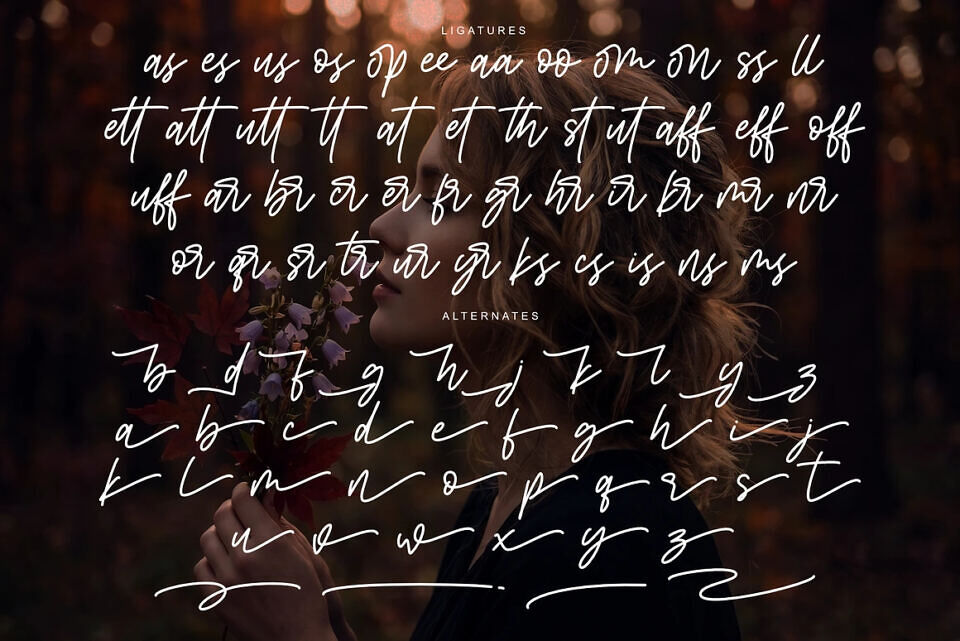 LIGATURES
as es us os op ee aa oo om on ss ll
ett att utt tt at et th st ut aff eff off
uff ar br cr er fr gr hr ir kr mr nr
or qr sr tr ur yr ks cs is ns ms
ALTERNATES
b d f g h j k l y z
a b c d e f g h i j
k l m n o p q r s t
u v w x y z